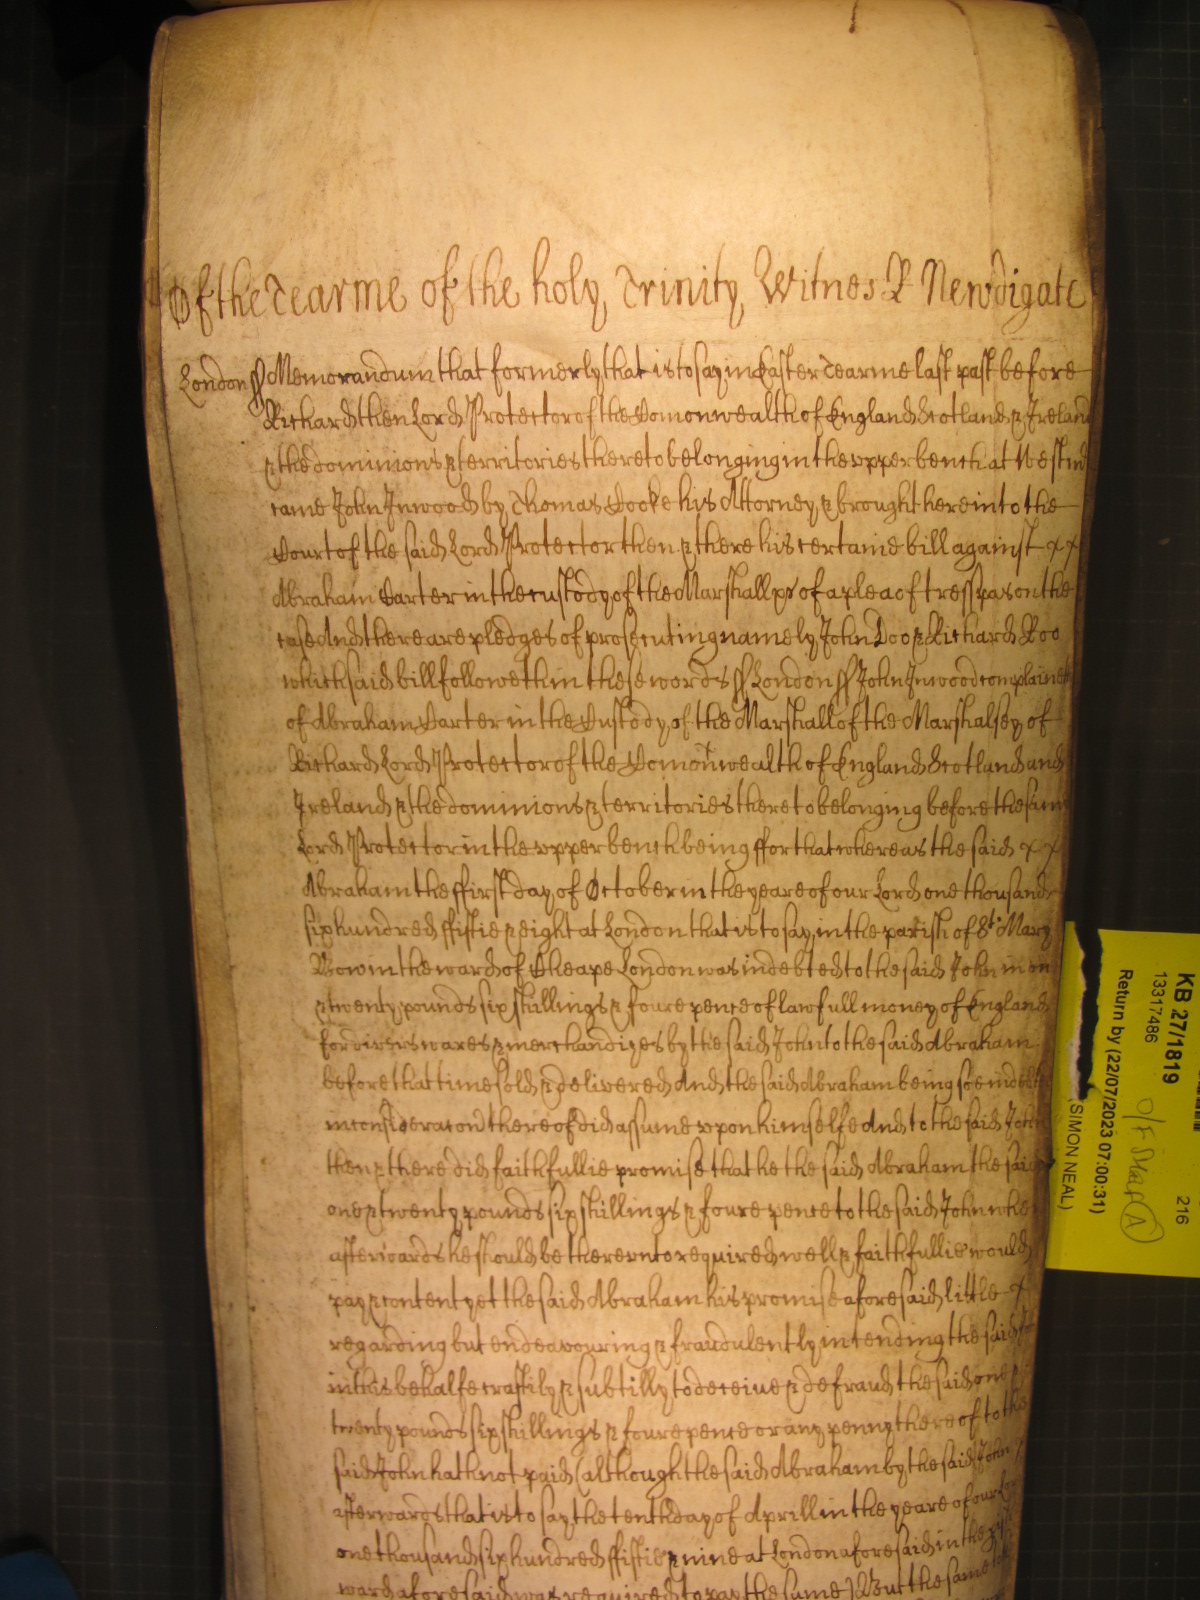 Of the Tearme of the holy Trinity Witnes R Newdigate
London ss Memorandum that formerly that is to say in Easter Tearme last past before
Richard then Lord Protector of the Comonwealth of England Scotland & Ireland
& the dominions & territories thereto belonging in the upper bench at Westm
came John Inwood by Thomas Cooke his Attorney & brought here into the
Court of the said Lord Protector then & there his certaine bill against x x
Abraham Carter in the custody of the Marshall &c of a plea of tresspas on the
case And there are pledges of prosecuting namely John Doo & Richard Roo
which said bill followeth in these words ss London ss John Inwood complaineth
of Abraham Carter in the Custody of the Marshall of the Marshalsey of
Richard Lord Protector of the Comonwealth of England Scotland and
Ireland & the dominions & territories thereto belonging before the same
Lord Protector in the upper bench being ffor that whereas the said x x
Abraham the ffirst day of October in the yeare of our Lord one thousand
six hundred ffiftie & eight at London that is to say in the parish of St Mary
Bow in the ward of Cheape London was indebted to the said John in one
& twenty pounds six shillings & foure pence of lawfull money of England
for divers wares & merchandizes by the said John to the said Abraham
before that time sold & delivered And the said Abraham being soe indebted
in consideracon thereof did assume upon himselfe And to the said John
then & there did faithfullie promise that he the said Abraham the said
one & twenty pounds six shillings & foure pence to the said John when
afterwards he should be thereunto required well & faithfullie would
pay & content yet the said Abraham his promise aforesaid little x
regarding but endeavouring & fraudulently intending the said John
in this behalfe craftily & subtilly to deceive & defraud the said one &
twenty pounds six shillings & foure pence or any penny thereof to the
said John hath not paid (although the said Abraham by the said John
afterwards that is to say the tenth day of Aprill in the yeare of our Lord
one thousand six hundred ffiftie & nine at London aforesaid in the
ward aforesaid was required to pay the same) But the same to
KB 27/1819
13317486
216
Return by (22/07/2023 07:00:31)
(SIMON NEAL)
O/F
A